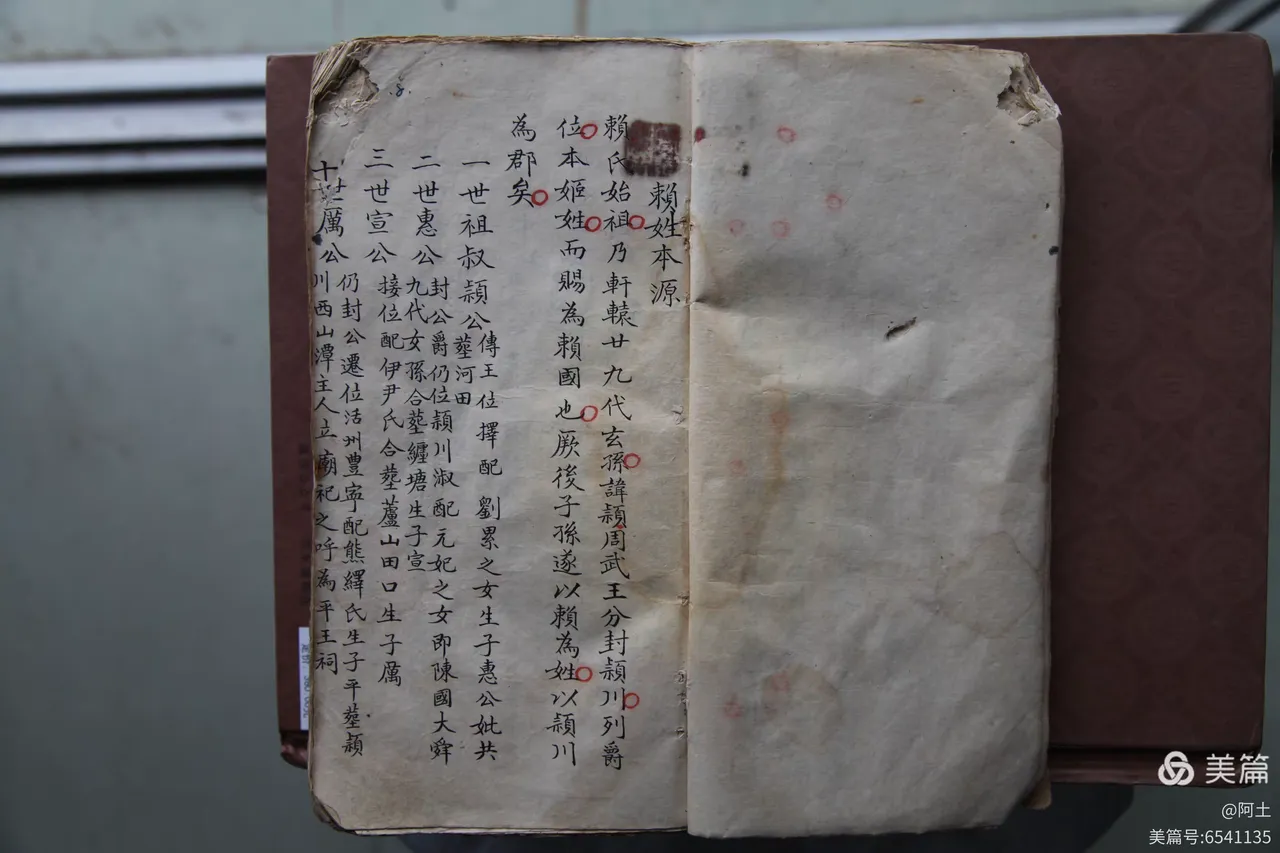 賴姓本源
賴氏始祖乃軒轅廿九代玄孫諱穎周武王分封穎川列爵
位本姬姓而賜為賴國也厥後子孫遂以賴為姓以穎川
為郡矣
一世祖叔穎公傳王位擇配劉累之女生子惠公妣共
塟河田
二世惠公封公爵仍位穎川淑配元妃之女即陳國大舜
九代女孫合塟纏塘生子宣
三世宣公接位配伊尹氏合塟蘆山田口生子厲
十世厲公仍封公遷位沽州豊寧配熊繹氏生子平塟穎
川西山潭主人立廟祀之呼為平王祠
美篇
@阿土
美篇号:6541135